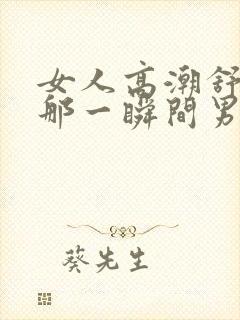 女人高潮舒
那一瞬间男
葵先生